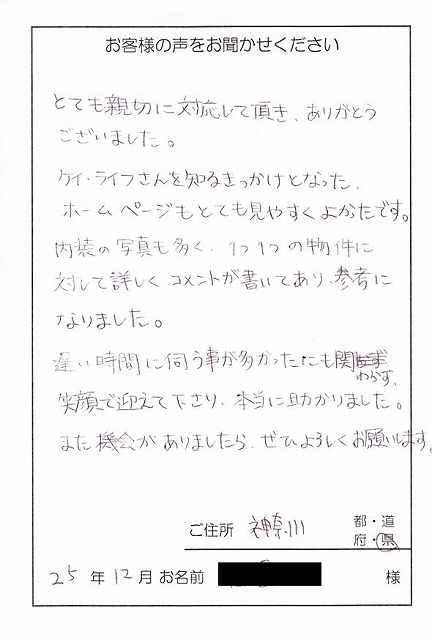 お客様の声をお聞かせください
とても親切に対応して頂き、ありがとう
ございました。
ケイ・ライフさんを知るきっかけとなった、
ホームページもとても見やすくよかたです。
内装の写真も多く、1つ1つの物件に
対して詳しくコメントが書いてあり、参考に
なりました。
遅い時間に伺う事が多かったにも関
わらず、
笑顔で迎えて下さり、本当に助かりました。
また機会がありましたら、ぜひよろしくお願いします。
ご住所 神奈川 都・道
府・県
25年12月 お名前 様